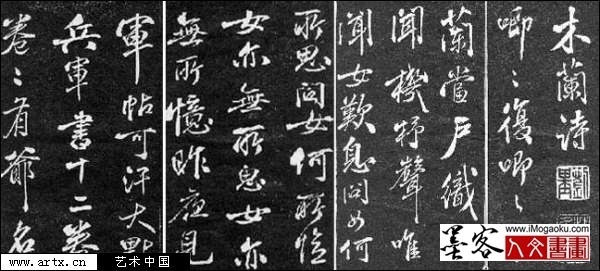 木蘭詩
唧〻復唧〻
蘭當戶織
聞機杼聲唯
聞女歎息問女何
所思問女何所憶
女亦無所思女亦
無所憶昨夜見
軍帖可汗大點
兵軍書十二卷
卷〻有爺名
www.artx.cn 艺术中国
www.iMogaoku.com
墨客
人文書畫